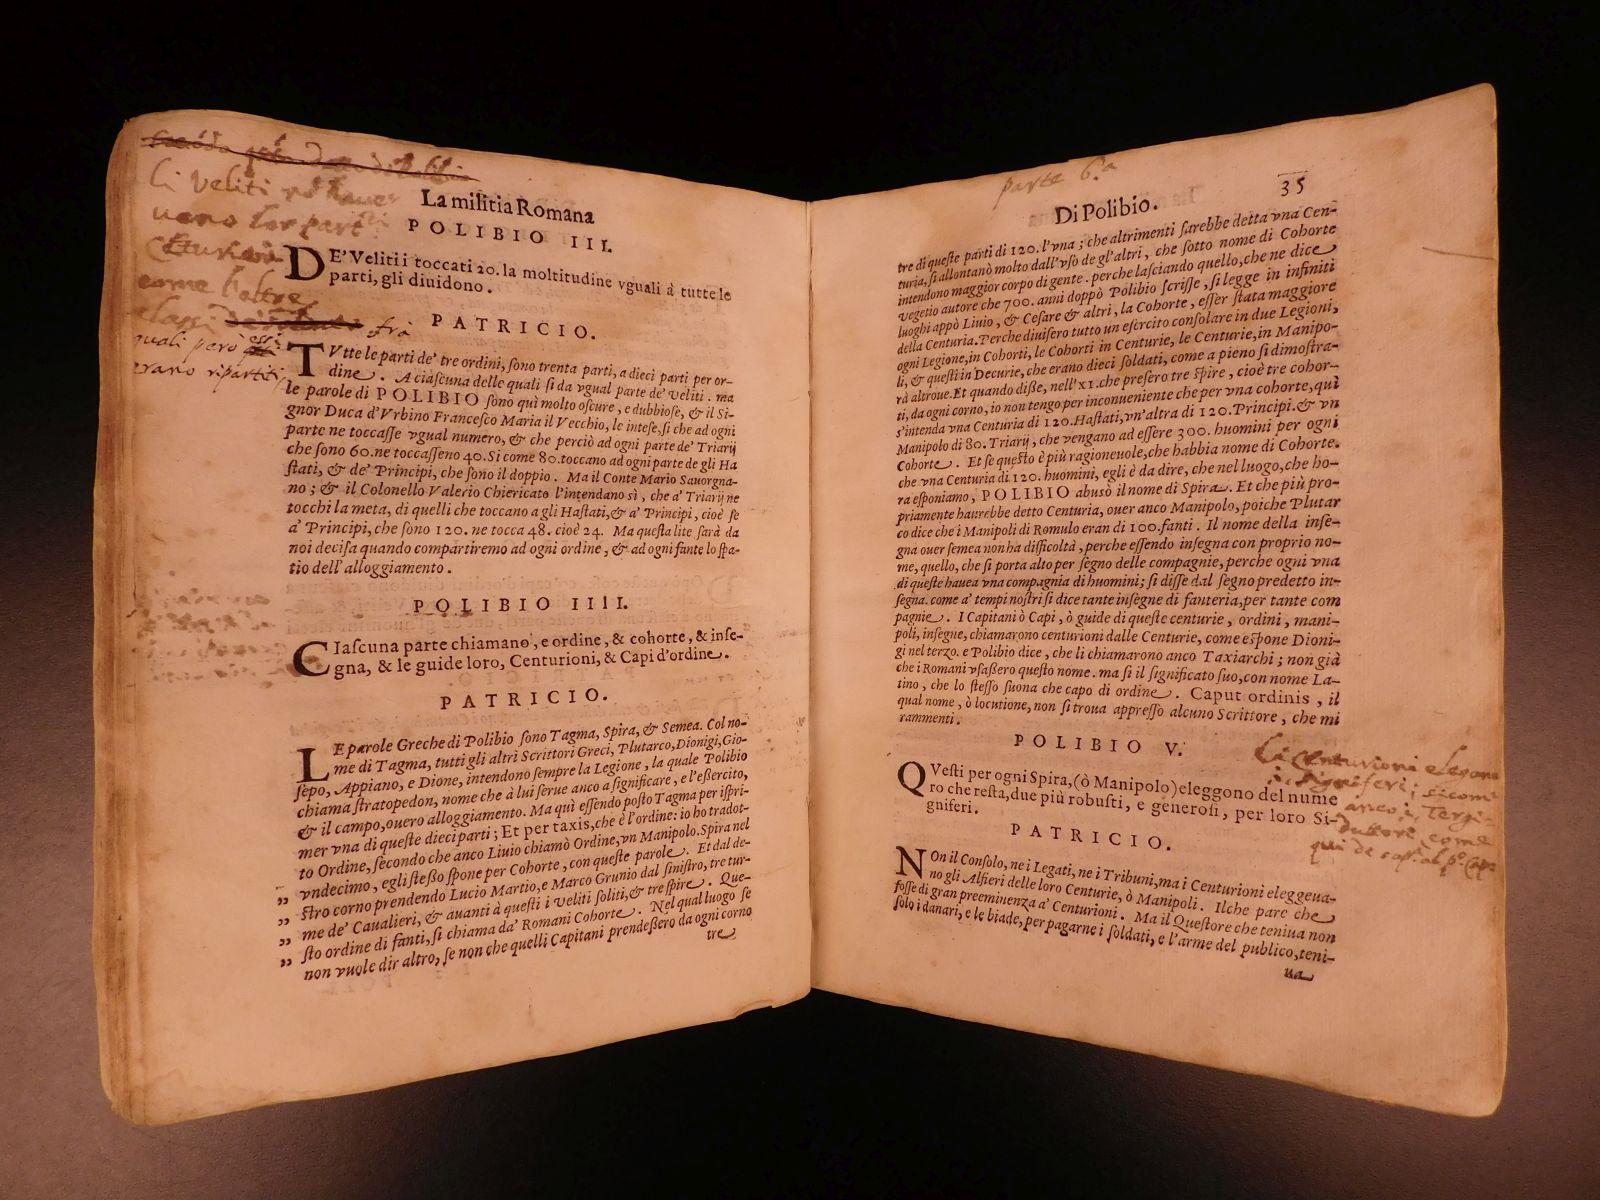 li veliti
La militia Romana
POLIBIO III.
DE' Veliti i toccati 20. la moltitudine vguali à tutte le
parti, gli diuidono.
PATRICIO.
frà
quali però
erano ripartiti
TVtte le parti de' tre ordini, sono trenta parti, a dieci parti per or-
dine. A ciascuna delle quali si da vgual parte de' veliti. ma
le parole di POLIBIO sono quì molto oscure, e dubbiose, & il Si-
gnor Duca d'Vrbino Francesco Maria il Vecchio, le intese, si che ad ogni
parte ne toccasse vgual numero, & che perciò ad ogni parte de' Triarij
che sono 60. ne toccasseno 40. Si come 80. toccano ad ogni parte de gli Ha
stati, & de' Principi, che sono il doppio. Ma il Conte Mario Sauorgna-
no; & il Colonello Valerio Chiericato l'intendano sì, che a' Triarij ne
tocchi la meta, di quelli che toccano a gli Hastati, & a' Principi, cioè se
a' Principi, che sono 120. ne tocca 48. cioè 24. Ma questa lite sarà da
noi decisa quando compartiremo ad ogni ordine, & ad ogni fante lo spa-
tio dell'alloggiamento.
POLIBIO IIII.
CIascuna parte chiamano, e ordine, & cohorte, & inse-
gna, & le guide loro, Centurioni, & Capi d'ordine.
PATRICIO.
LE parole Greche di Polibio sono Tagma, Spira, & Semea. Col no-
me di Tagma, tutti gli altri Scrittori Greci, Plutarco, Dionigi, Gio-
sepo, Appiano, e Dione, intendono sempre la Legione, la quale Polibio
chiama stratopedon, nome che à lui serue anco a significare, e l'esército,
& il campo, ouero alloggiamento. Ma quì essendo posto Tagma per ispri-
mer vna di queste dieci parti; Et per taxis, che è l'ordine: io ho tradot-
to Ordine, secondo che anco Liuio chiamò Ordine, vn Manipolo. Spira nel
vndecimo, egli stesso spone per Cohorte, con queste parole. Et dal de-
„ stro corno prendendo Lucio Martio, e Marco Grunio dal sinistro, tre tur-
„ me de' Caualieri, & auanti à questi i veliti soliti, & tre spire. Que-
„ sto ordine di fanti, si chiama da' Romani Cohorte. Nel qual luogo se
„ non vuole dir altro, se non che quelli Capitani prendessero da ogni corno
tre
parte 6.a
35
Di Polibio.
tre di queste parti di 120. l'vna; che altrimenti sarebbe detta vna Cen-
turia, si allontanò molto dall'vso de gl'altri, che sotto nome di Cohorte
intendono maggior corpo di gente. perche lasciando quello, che ne dice
vegetio autore che 700. anni doppò Polibio scrisse, si legge in infiniti
luoghi appò Liuio, & Cesare & altri, la Cohorte, esser stata maggiore
della Centuria. Perche diuisero tutto un esército consolare in due Legioni,
ogni Legione, in Cohorti, le Cohorti in Centurie, le Centurie, in Manipo-
li, & questi in Decurie, che erano dieci soldati, come a pieno si dimostra-
rà altroue. Et quando disse, nell'XI. che presero tre spire, cioè tre cohor-
ti, da ogni corno, io non tengo per inconueniente che per vna cohorte, quì
s'intenda vna Centuria di 120. Hastati, vn'altra di 120. Principi. & vn
Manipolo di 80. Triarij, che vengano ad essere 300. huomini per ogni
Cohorte. Et se questo è più ragioneuole, che habbia nome di Cohorte.
che vna Centuria di 120. huomini, egli è da dire, che nel luogo, che ho-
ra esponiamo, POLIBIO abusò il nome di Spira. Et che più pro-
priamente haurebbe detto Centuria, ouer anco Manipolo, poiche Plutar
co dice che i Manipoli di Romulo eran di 100. fanti. Il nome della inse-
gna ouer semea non ha difficoltà, perche essendo insegna con proprio no-
me, quello, che si porta alto per segno delle compagnie, perche ogni vna
di queste hauea vna compagnia di huomini; si disse dal segno predetto in-
segna. come a' tempi nostri si dice tante insegne di fanteria, per tante com
pagnie. I Capitani ò Capi, ò guide di queste centurie, ordini, mani-
poli, insegne, chiamarono centurioni dalle Centurie, come espone Dioni-
gi nel terzo. e Polibio dice, che li chiamarono anco Taxiarchi; non già
che i Romani vsassero questo nome. ma sì il significato suo, con nome La-
tino, che lo stesso suona che capo di ordine. Caput ordinis, il
qual nome, ò locutione, non si troua appresso alcuno Scrittore, che mi
rammenti.
POLIBIO V.
QVesti per ogni Spira, (ò Manipolo) eleggono del nume
ro che resta, due più robusti, e generosi, per loro Si-
gniferi.
li Centurioni
come
PATRICIO.
NOn il Consolo, ne i Legati, ne i Tribuni, ma i Centurioni eleggeua-
no gli Alfieri delle loro Centurie, ò Manipoli. Ilche pare che
fosse di gran preeminenza a' Centurioni. Ma il Questore che teniua non
solo i danari, e le biade, per pagarne i soldati, e l'arme del publico, teni-
ua